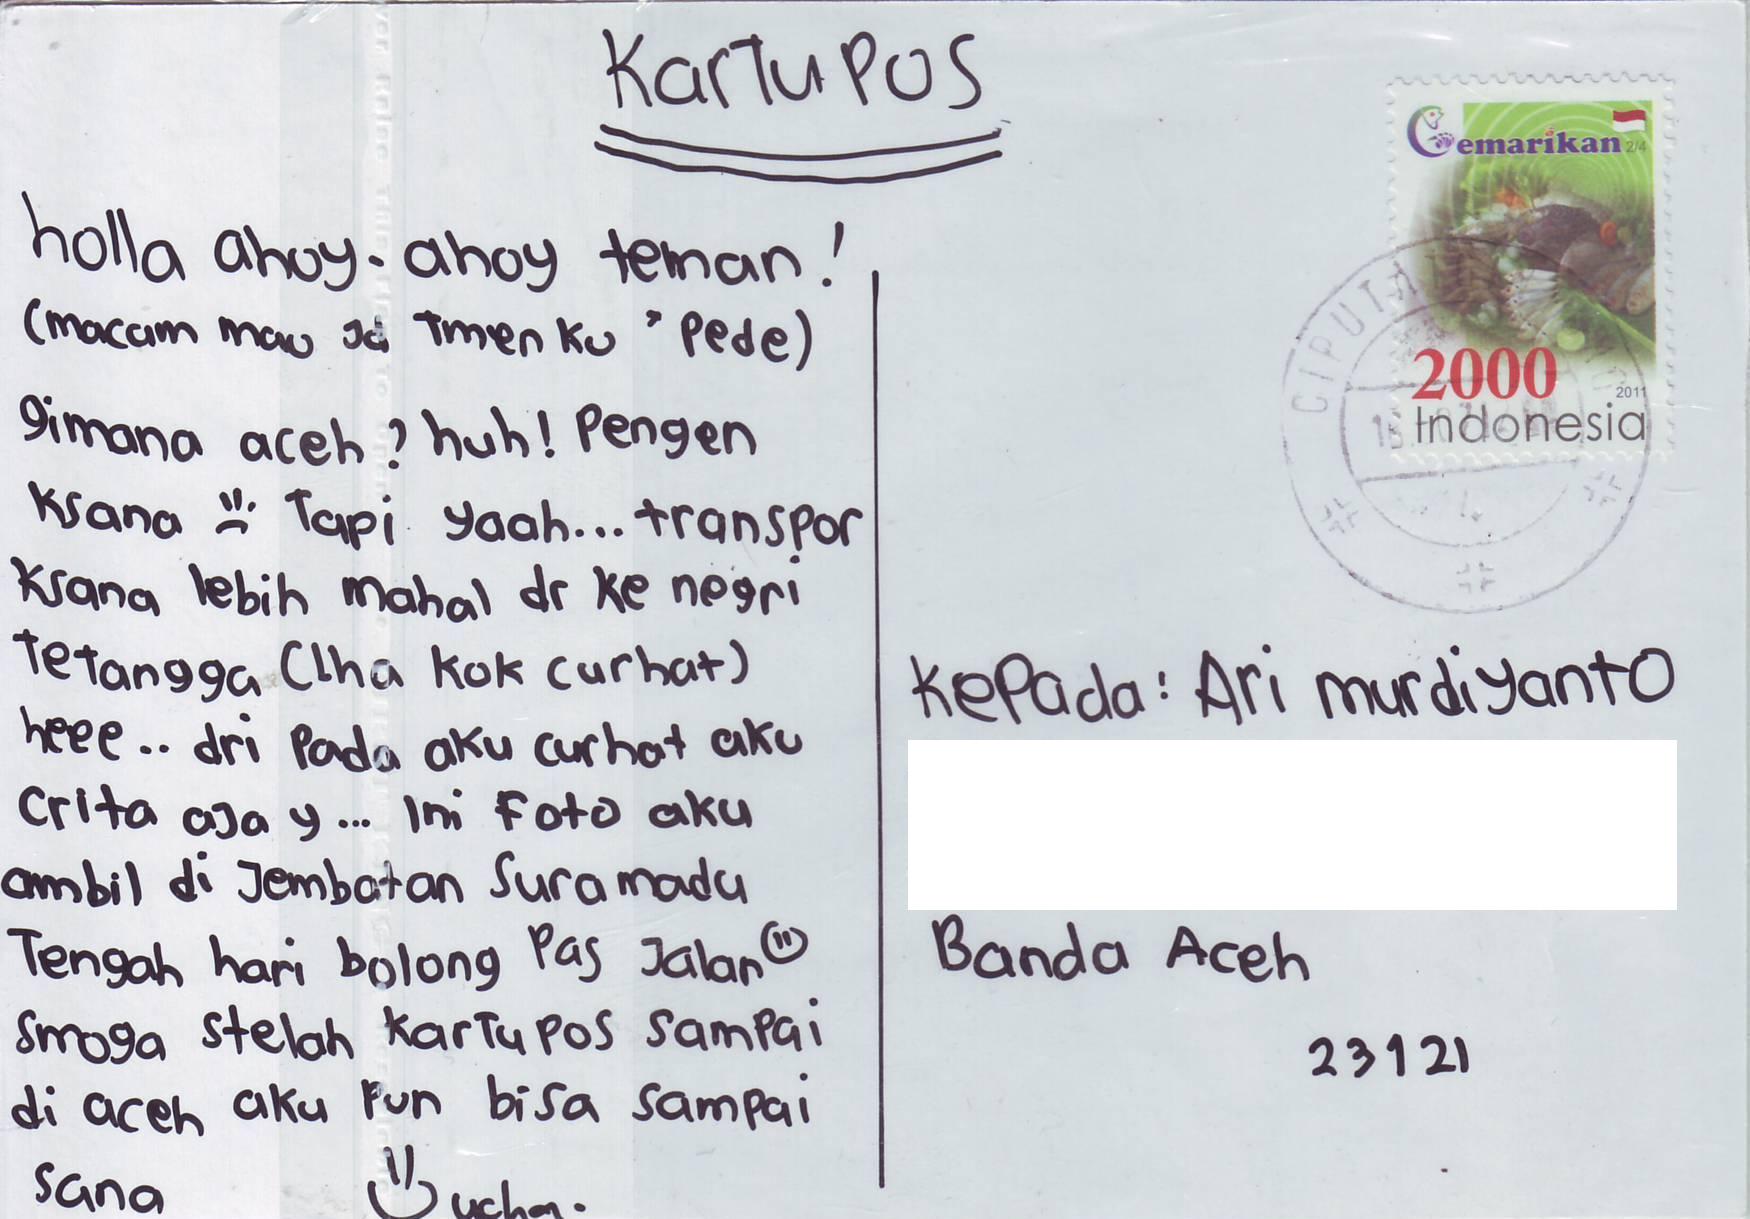 KarTu POS
holla ahoy-ahoy teman!
(macam mau Jd Tmen ku " Pede)
gimana aceh? huh! Pengen
Ksana Tapi yaah... transpor
Ksana lebih mahal dr ke negri
Tetangga (lha kok curhat)
heee.. dri Pada aku curhat aku
Crita aJa y... Ini Foto aku
ambil di Jembatan Suramadu
Tengah hari bolong Pas Jalan
smoga stelah KarTu POS sampai
di aceh aku Pun bisa sampai
sana
ucha.
Gemarikan 2/4
2000
2011
Indonesia
CIPUTA
Kepada: Ari murdiyanto
Banda Aceh
23121